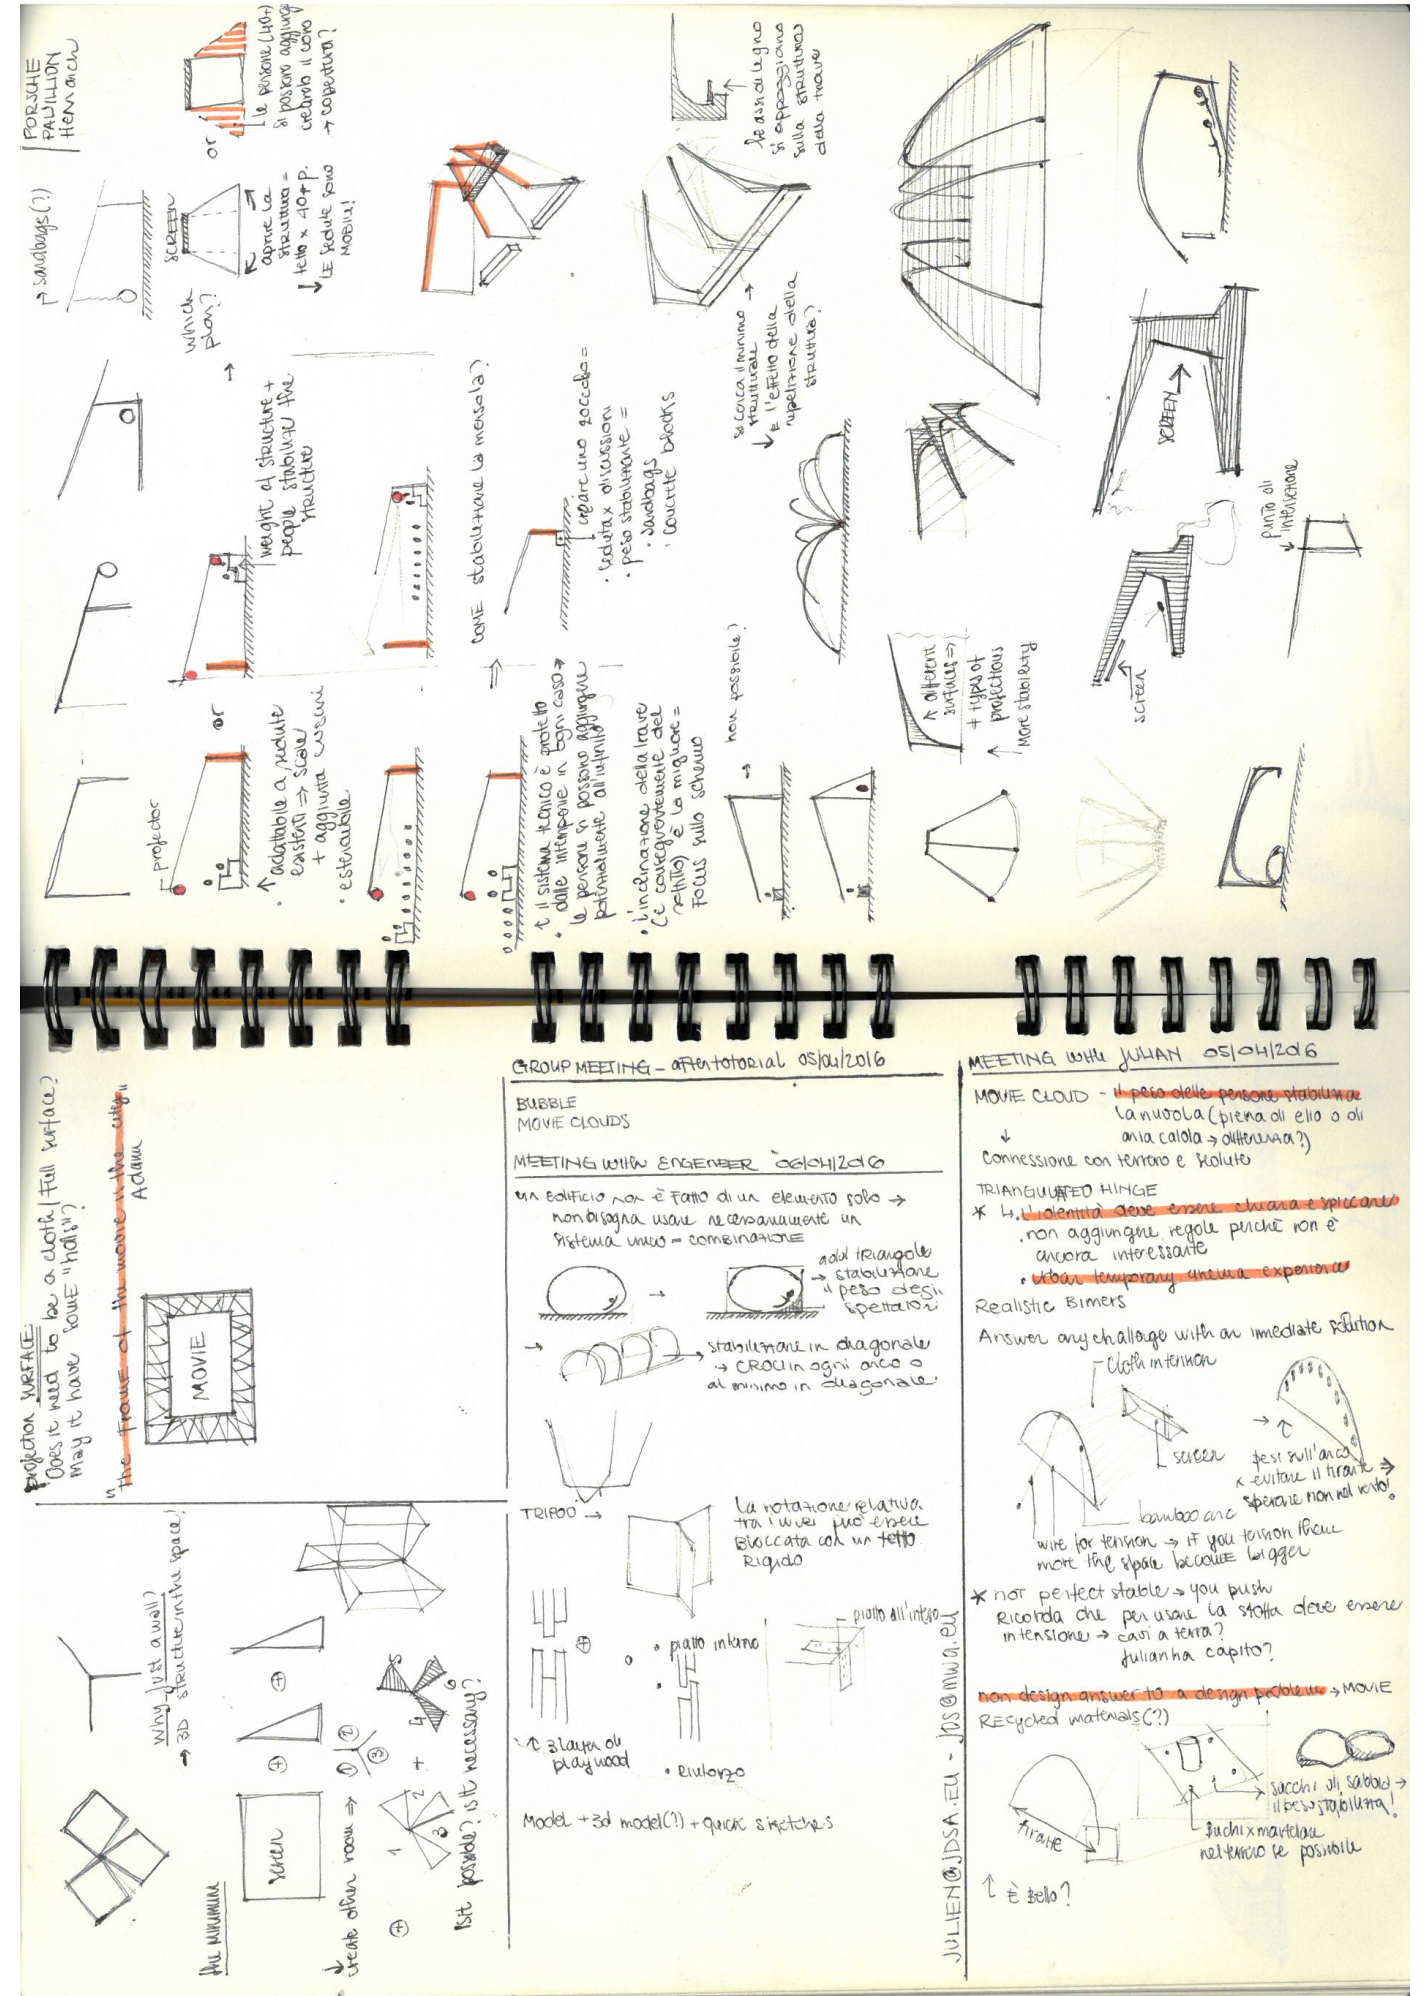 PORSCHE
PAVILLION
Hennarch
→ sandbags(?)
which
plan?
→
SCREEN
aprire la
struttura =
tetto x 40+ p.
↓ LE sedute sono
MOBILI!
or
le persone (40+)
si possono aggiungere
creando il cono
→ copertura?
projector
or
weight of structure +
people stabilize the
structure
• ↑ adattabile a sedute
esistenti ⇒ scale
+ aggiunta cuscini
• estendibile
⇒ COME stabilizzare la mensola?
creare uno zoccolo =
• seduta x discussioni
• peso stabilizzante =
• sandbags
• concrete blocks
↑ il sistema tecnico è protetto
• dalle intemperie in ogni caso →
le persone si possono aggiungere
potenzialmente all'infinito
• l'inclinazione della trave
(e conseguentemente del
soffitto) è la migliore =
FOCUS sullo schermo
→ non possibile?
si cerca il minimo →
strutturale
↓ È l'effetto della
ripetizione della
struttura?
le assi di legno
si appoggiano
sulla struttura
della trave
↑ different
surfaces ⇒
+ types of
projections
↑ More stability
SCREEN →
screen
punto di
intersezione
projection SURFACE:
Does it need to be a cloth / Full surface?
May it have some "hols"?
"the frame of the movie is the city"
Adam
MOVIE
Why just a wall?
→ 3D structure in the space!
the minimum
screen
⊕
⊕
↓
create other room ⇒
1
2
3
⊕
1
2
3
+
4
5
6
Is it possible? is it necessary?
GROUP MEETING - after totorial 05/04/2016
BUBBLE
MOVIE CLOUDS
MEETING with ENGENEER 06/04/2016
un edificio non è fatto di un elemento solo →
non bisogna usare necessariamente un
sistema unico = COMBINAZIONE
add triangole
→ stabilizzare
il peso degli
spettatori
→
stabilizzare in diagonale
→ CROCI in ogni arco o
al minimo in diagonale
TRIPOD →
la rotazione relativa
tra i muri può essere
Bloccata con un tetto
Rigido
⊕
• piatto interno
piatto all'interno
↑ 3 layer di
playwood
• Rinforzo
Model + 3d model(?) + quick sketches
JULIEN@JDSA.EU - JDS@MWA.EU
MEETING with JULIAN 05/04/2016
MOVIE CLOUD - il peso delle persone stabilizza
la nuvola (piena di elio o di
aria calda → differenza?)
↓
connessione con terreno e sedute
TRIANGULATED HINGE
* ↳ • l'identità deve essere chiara e spiccare
• non aggiungere regole perché non è
ancora interessante
• Urban temporary cinema experience
Realistic Bimers
Answer any challenge with an imediate solution
cloth in tension
screen
bamboo arc
pesi sull'arco
x evitare il tirante ⇒
sperare non nel vento!
wire for tension → if you tension them
more the space become bigger
* not perfect stable → you push
Ricorda che per usare la stoffa deve essere
in tensione → cavi a terra?
Julian ha capito?
non design answer to a design problem → MOVIE
Recycled materials(?)
tirante
sacchi di sabbia →
il peso stabilizza!
Buchi x martellare
nel terreno se possibile
↑ È Bello?